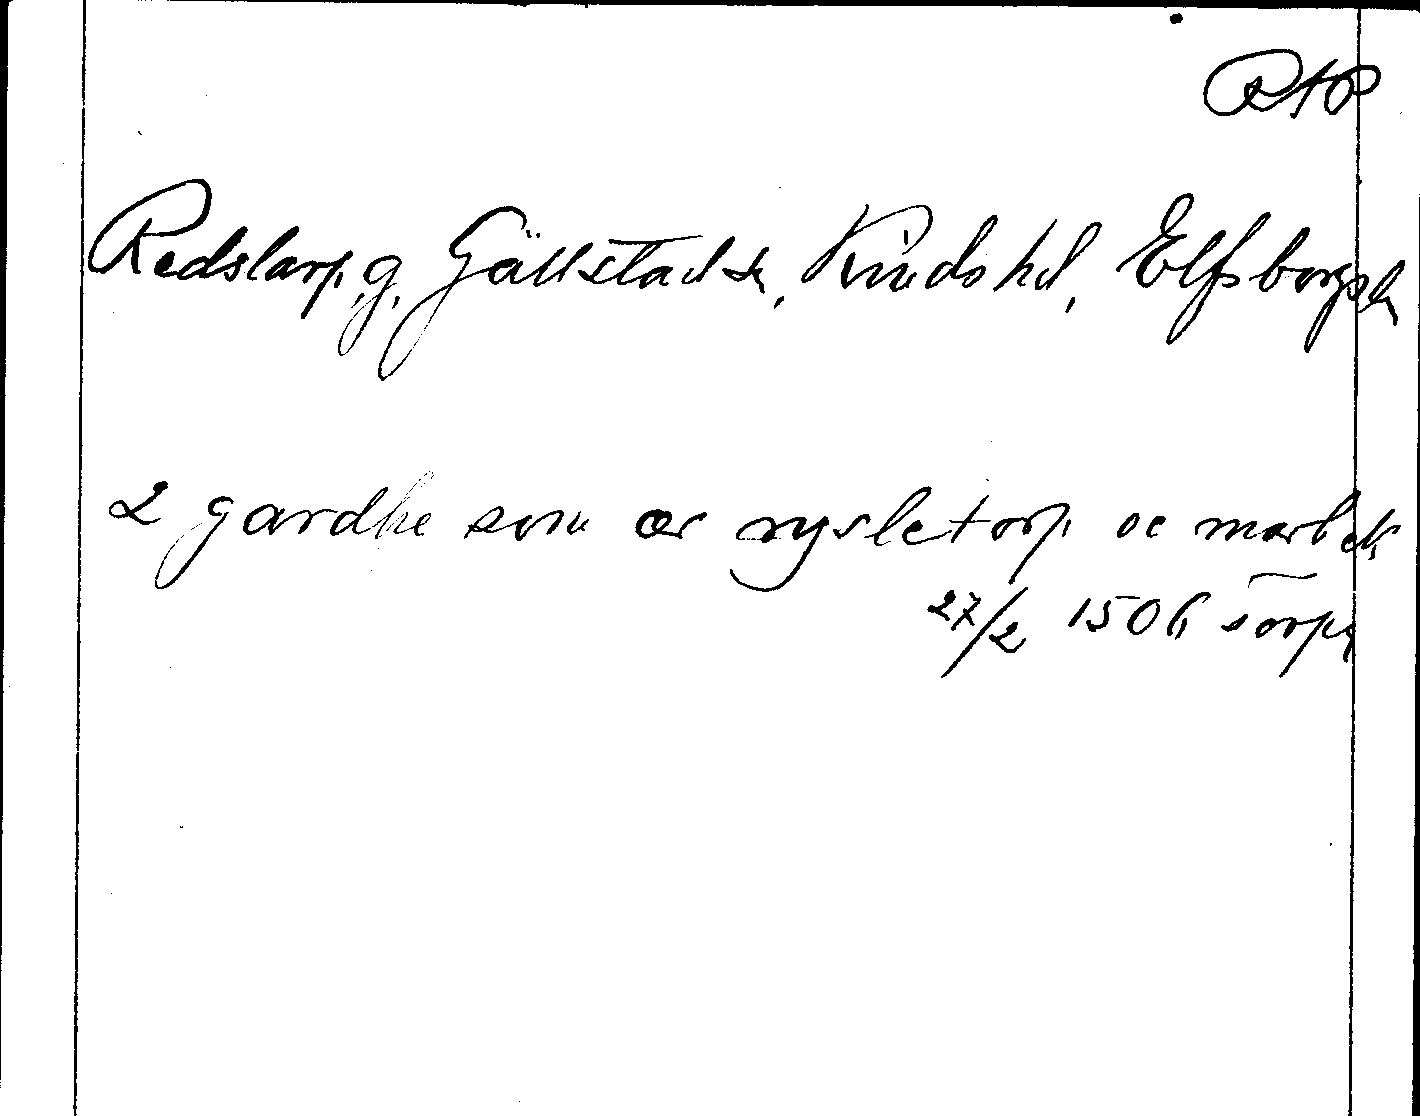 RAP
Redslarp, g, Gällstad sn, Kinds hd, Elfsborgs l
2 gardhe som ær rysletorp oc marbek
27/2 1506 torpa